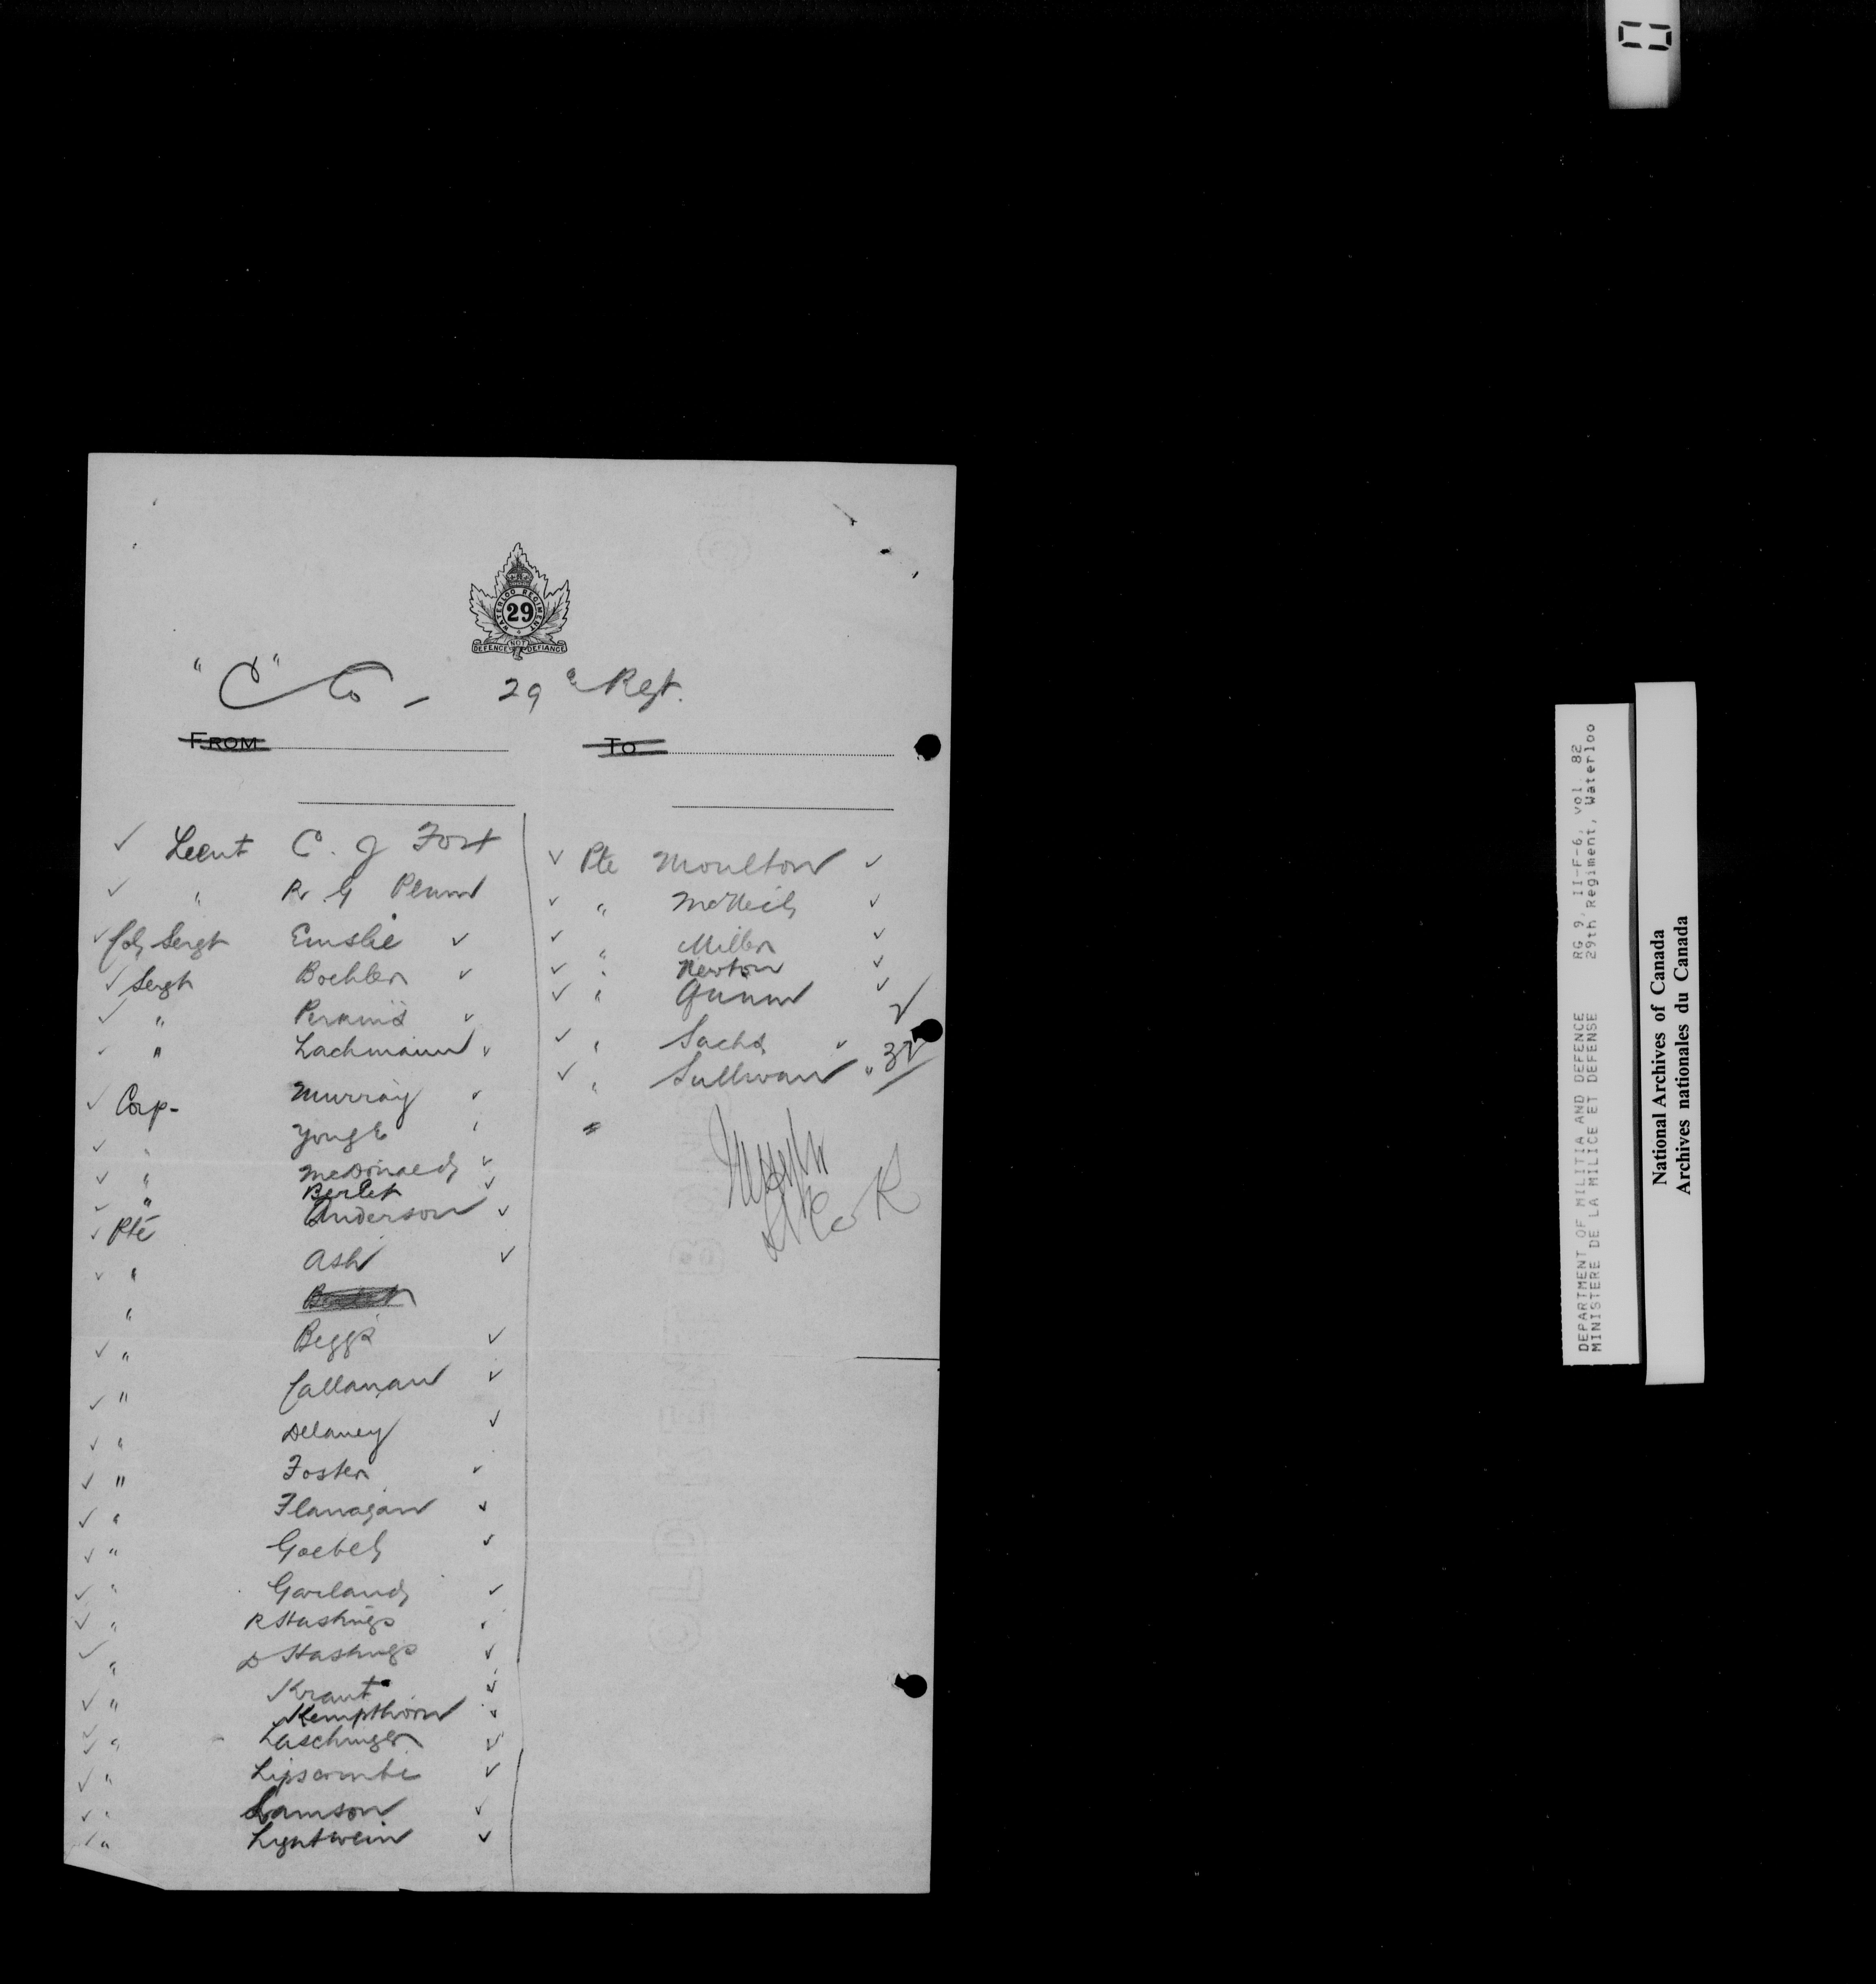 WATERLOO REGIMENT
29
DEFENCE NOT DEFIANCE
"C" Co - 29th Regt.
FROM TO
✓ Lieut C. J Fort
✓ " R. G Plum
✓ Col Sergt Emslie ✓
✓ Sergt Boehler ✓
✓ " Perkins ✓
✓ " Lachmann ✓
✓ Corp- Murray ✓
✓ " Yonge ✓
✓ " McDonald ✓
✓ " Berlet ✓
✓ Pte Anderson ✓
✓ " Ash ✓
"
✓ " Beggs ✓
✓ " Callanan ✓
✓ " Delaney ✓
✓ " Foster ✓
✓ " Flanagan ✓
✓ " Goebel ✓
✓ " Garland ✓
✓ " R Hastings ✓
✓ " D Hastings ✓
✓ " Kraut ✓
Kempthorn ✓
✓ " Laschinger ✓
✓ " Lipscombe ✓
✓ " Lamson ✓
✓ " Lightwein ✓
✓ Pte Moulton ✓
✓ " McNeil ✓
✓ " Miller ✓
✓ " Newton ✓
✓ " Gunn ✓
✓ " Sachs ✓
✓ " Sullivan "
"
DEPARTMENT OF MILITIA AND DEFENCE RG 9, II-F-6, vol. 82
MINISTERE DE LA MILICE ET DEFENSE 29th Regiment, Waterloo
National Archives of Canada
Archives nationales du Canada